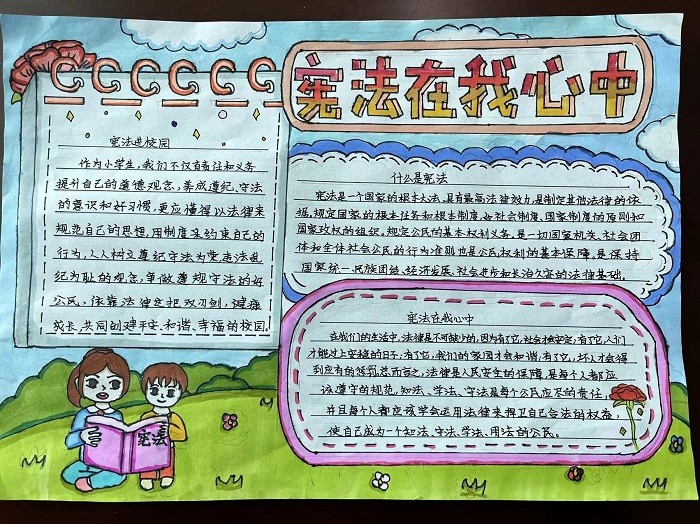 宪法在我心中
宪法进校园
作为小学生,我们不仅有责任和义务
提升自己的道德观念,养成遵纪、守法
的意识和好习惯,更应懂得以法律来
规范自己的思想,用制度来约束自己的
行为,人人树立遵纪守法为荣违法乱
纪为耻的观念,争做遵规守法的好
公民,依靠法律这把双刃剑,健康
成长,共同创建平安、和谐、幸福的校园.
什么是宪法
宪法是一个国家的根本大法,具有最高法律效力,是制定其他法律的依
据,规定国家的根本任务和根本制度,如社会制度、国家制度的原则和
国家政权的组织,规定公民的基本权利义务,是一切国家机关、社会团
体和全体社会公民的行为准则也是公民权利的基本保障,是保持
国家统一、民族团结、经济发展、社会进步和长治久安的法律基础.
宪法在我心中
在我们的生活中,法律是不可缺少的,因为有了它,社会才安定;有了它,人们
才能过上安稳的日子,有了它,我们的家园才会和谐;有了它,坏人才会得
到应有的惩罚.总而言之,法律是人民安全的保障,是每个人都应
该遵守的规范,知法、学法、守法是每个公民应尽的责任,
并且每个人都应该学会运用法律来捍卫自己合法的权益,
使自己成为一个知法、守法、学法、用法的公民。
宪法